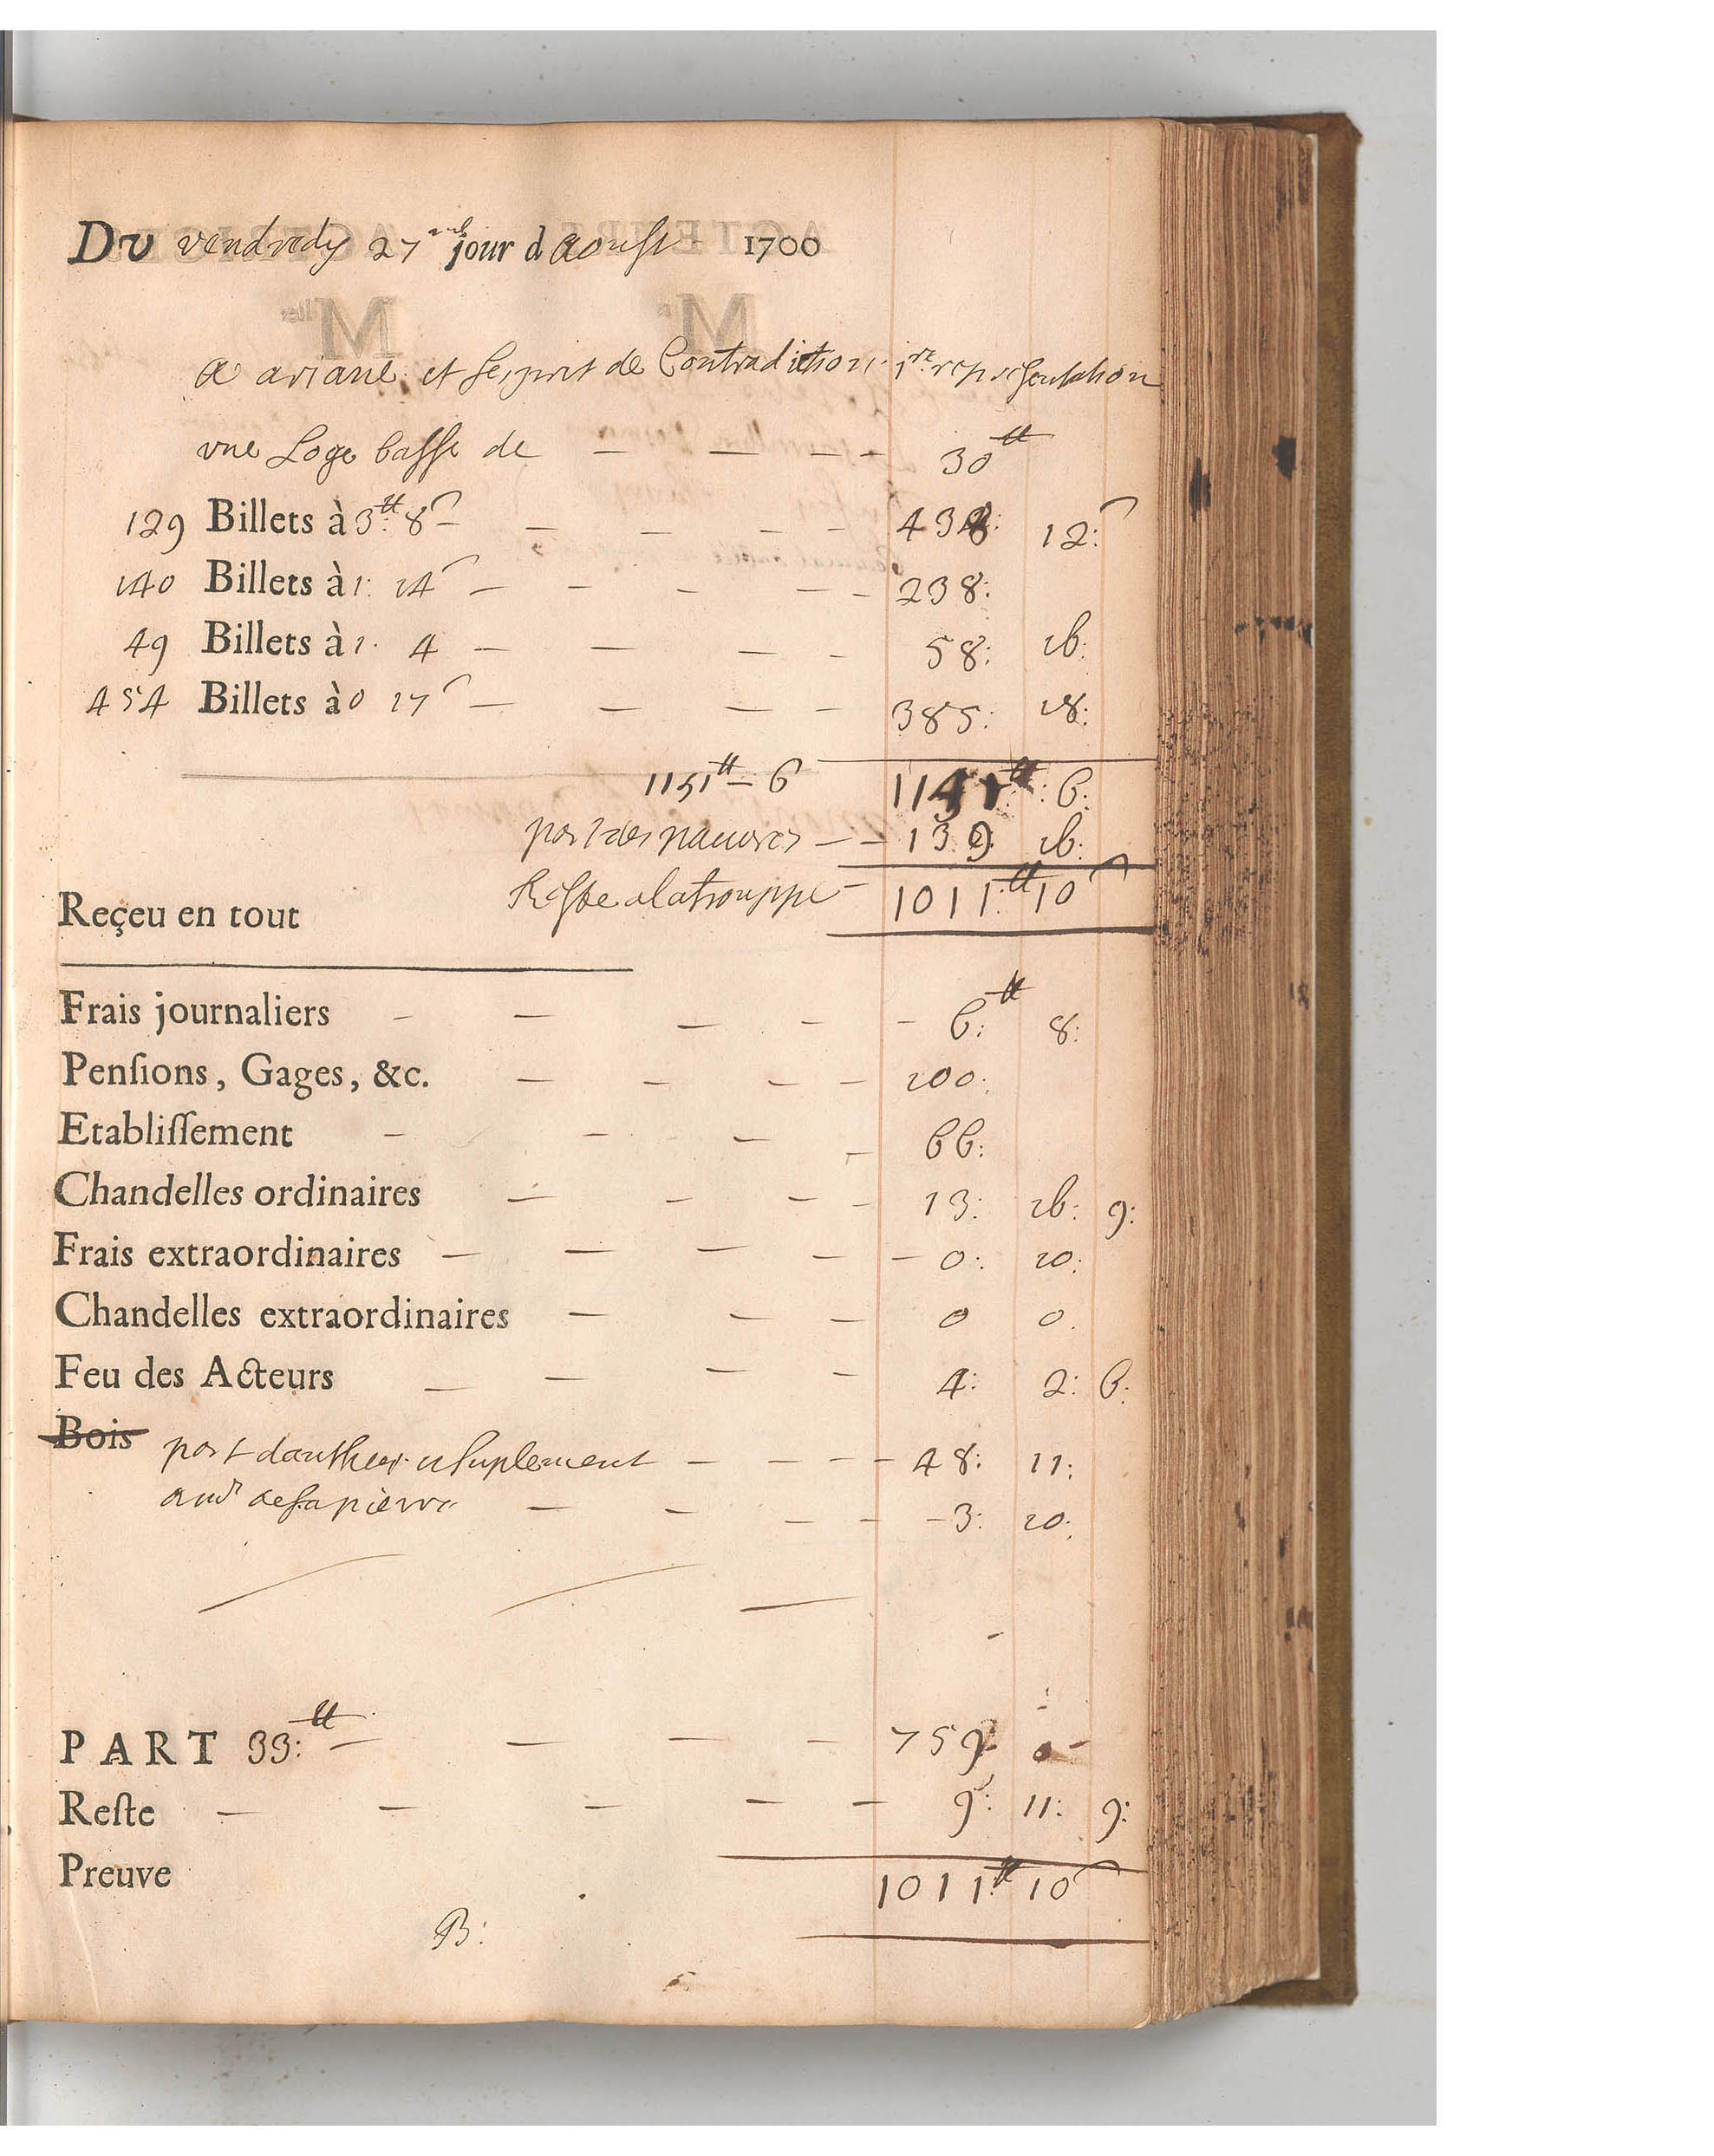 DU vendredy 27me jour d aoust 1700
A ariane et Lesprit de Contradiction 1re representation
vne Loge basse de 30tt
129 Billets à 3tt 8s 438: 12:s
140 Billets à 1: 14s 238:
49 Billets à 1. 4 58: 16:
454 Billets à 0 17s 385: 18:
1151tt 6 1151tt: 6:
part des pauvres 139 16:
Reste a la trouppe 1011tt 10s
Reçeu en tout
Frais journaliers 6:tt 8:
Penſions, Gages, &c. 100:
Etabliſſement 66:
Chandelles ordinaires 13: 16: 9:
Frais extraordinaires 0: 10:
Chandelles extraordinaires 0 0.
Feu des Acteurs 4: 2: 6:
Bois
part dautheur et suplement 48: 11:
de la pierre 3: 10:
PART 33:tt 759 0
Reſte 9: 11: 9:
Preuve 1011tt 10s
B: